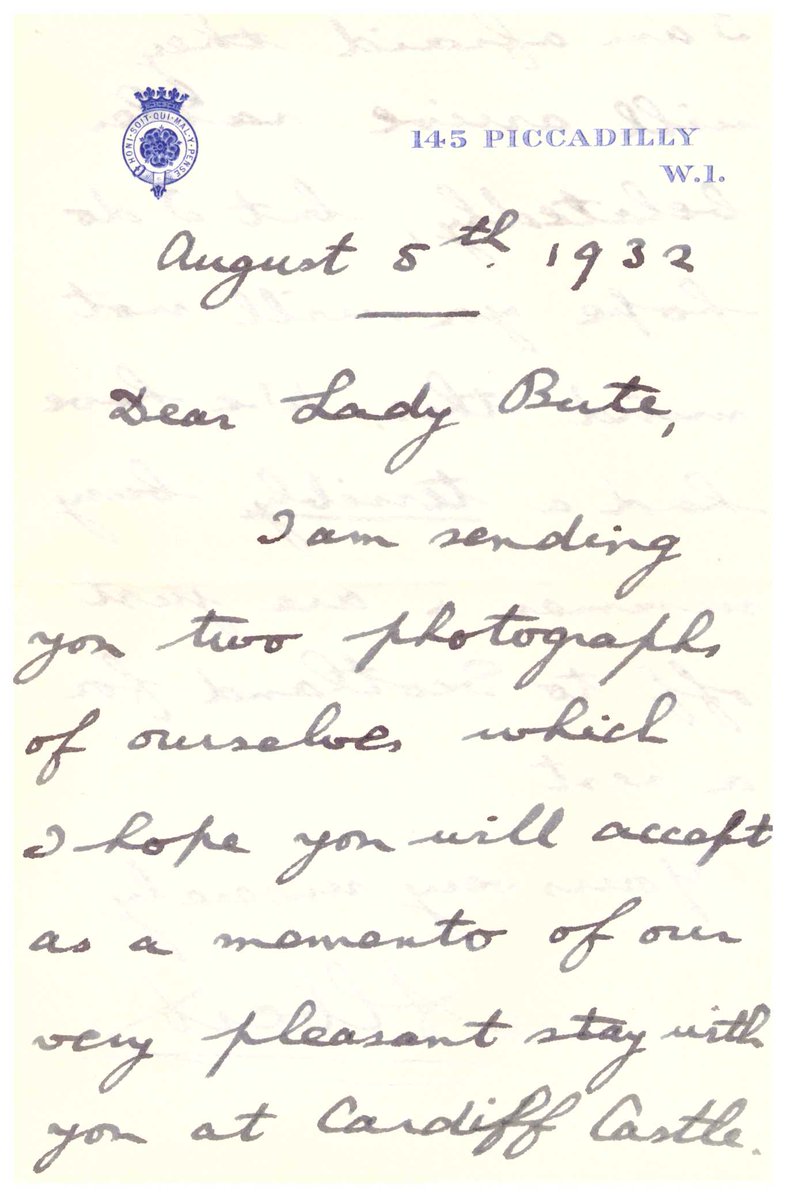 HONI·SOIT·QUI·MAL·Y·PENSE
145 PICCADILLY
W.1.
August 5th. 1932
Dear Lady Bute,
I am sending
you two photographs
of ourselves which
I hope you will accept
as a memento of our
very pleasant stay with
you at Cardiff Castle.